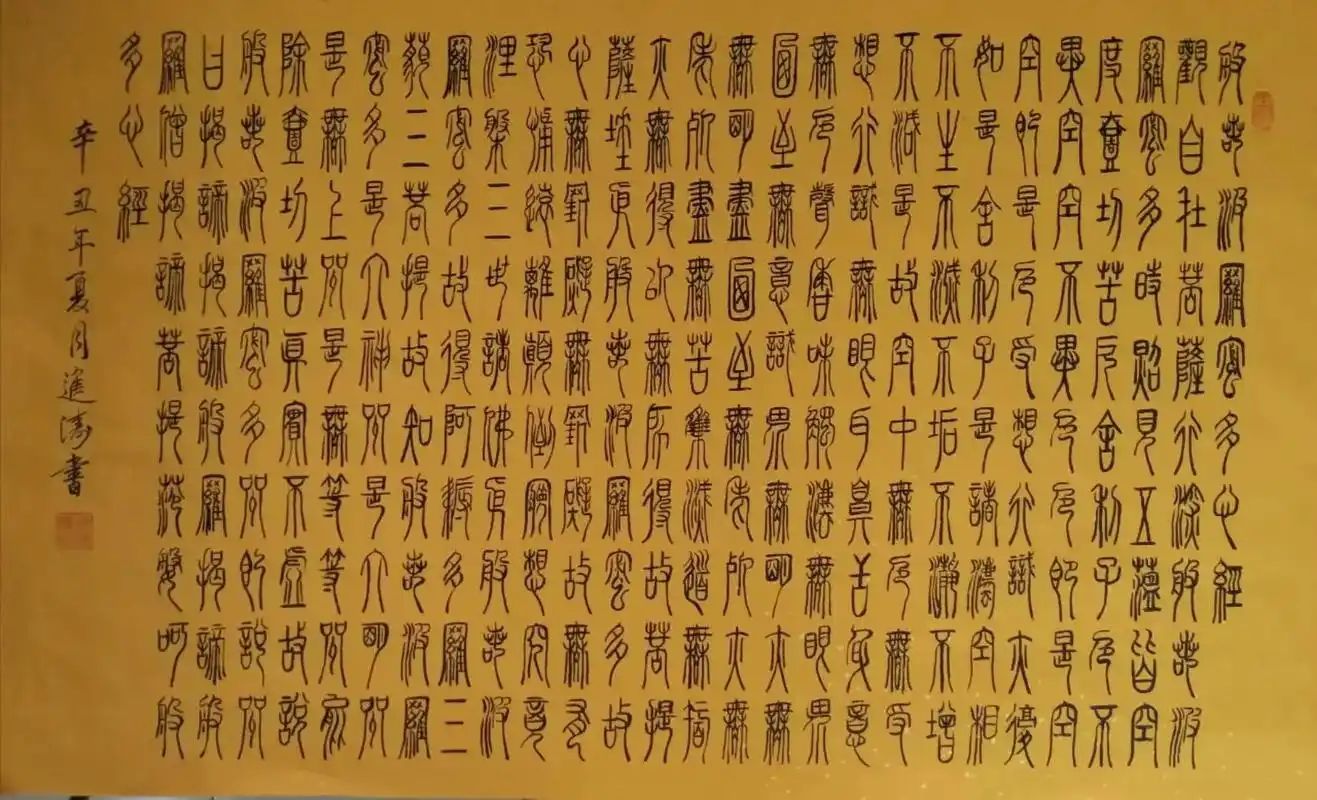 般若波羅蜜多心經
觀自在菩薩行深般若波
羅蜜多時照見五蘊皆空
度壹切苦厄舍利子色不
異空空不異色色即是空
空即是色受想行識亦復
如是舍利子是諸法空相
不生不滅不垢不淨不增
不減是故空中無色無受
想行識無眼耳鼻舌身意
無色聲香味觸法無眼界
乃至無意識界無明亦無
無明盡乃至無老死亦無
老死盡無苦集滅道無智
亦無得以無所得故菩提
薩埵依般若波羅蜜多故
心無罣礙無罣礙故無有
恐怖遠離顛倒夢想究竟
涅槃三世諸佛依般若波
羅蜜多故得阿耨多羅三
藐三菩提故知般若波羅
蜜多是大神咒是大明咒
是無上咒是無等等咒能
除壹切苦真實不虛故說
般若波羅蜜多咒即說咒
曰揭諦揭諦般羅揭諦般
羅僧揭諦菩提薩婆呵般
多心經
辛丑年夏月進濤書